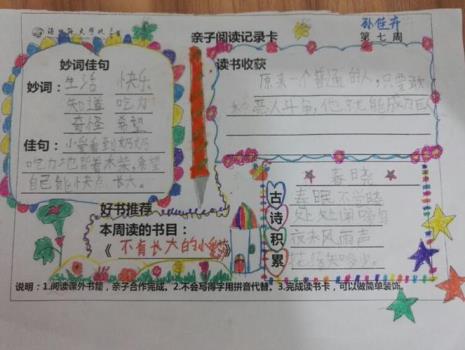 亲子阅读记录卡
第七周
妙词佳句
妙词：生活 快乐
知道 吃力
奇怪 希望
佳句：小爱看到奶奶
吃力地背着木柴，希望
自己能快点长大。
读书收获
原来一个普通的人，只要敢
恶人斗争，他
好书推荐
本周读的书目：
《不肯长大的小
古诗积累
春晓
春眠不觉晓
处处闻啼鸟
夜来风雨声
花落知多少
说明：1.阅读课外书籍，亲子合作完成。2.不会写得字用拼音代替。3.完成读书卡，可以做简单装饰。